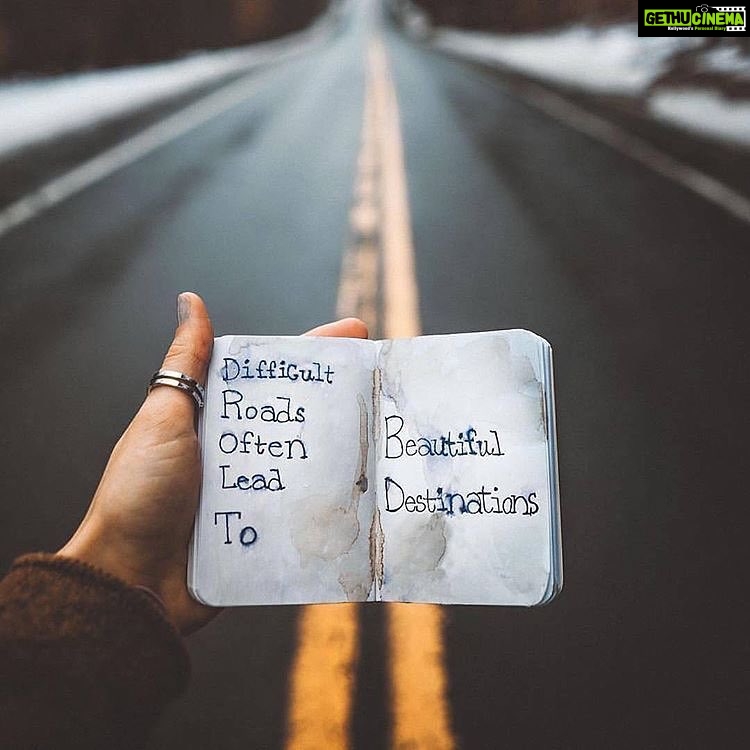 GETHUCINEMA
Kollywood's Personal Diary
Difficult
Roads
Often
Lead
To
Beautiful
Destinations